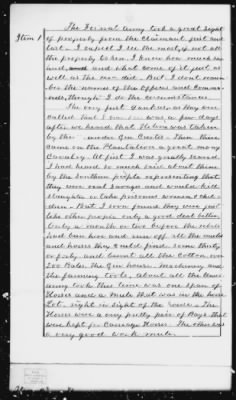 The Federal Army took a good deal
Item 1 of property from the claimant just and
last - I expect I see the most, if not all
the property taken. I know how much
and, and what some of it just as
well as the men did - But I dont remem
ber the names of the Officers and Comma
nds, though I do the circumstances.
The very first Yankees, as they were
called that I ever saw was, a few days
after we heard that Helena was taken
by the under Gen Curtis - Then there
came on the Plantation a great many
Cavalry. At first I was greatly scared,
I had heard so much said about them
by the Southern people representing that
they were real savage and would kill
slaughter or take prisoners women & chil
dren - But I soon found they were just
like other people only a good deal better.
Only a month or two before the rebels
had been here and run off all the mules
and horses they could find, some thirty
or forty, and burnt all the Cotton over
200 Bales. The Gin house, Machinery and
the farming tools, about all the Union
army took this time was one span of
Horses and a Mule that was in the horse
Lot, right in sight of the road - The
Horses were a very pretty pair of Bays that
was kept for Carriage Horses. The other was
a very good work mule.